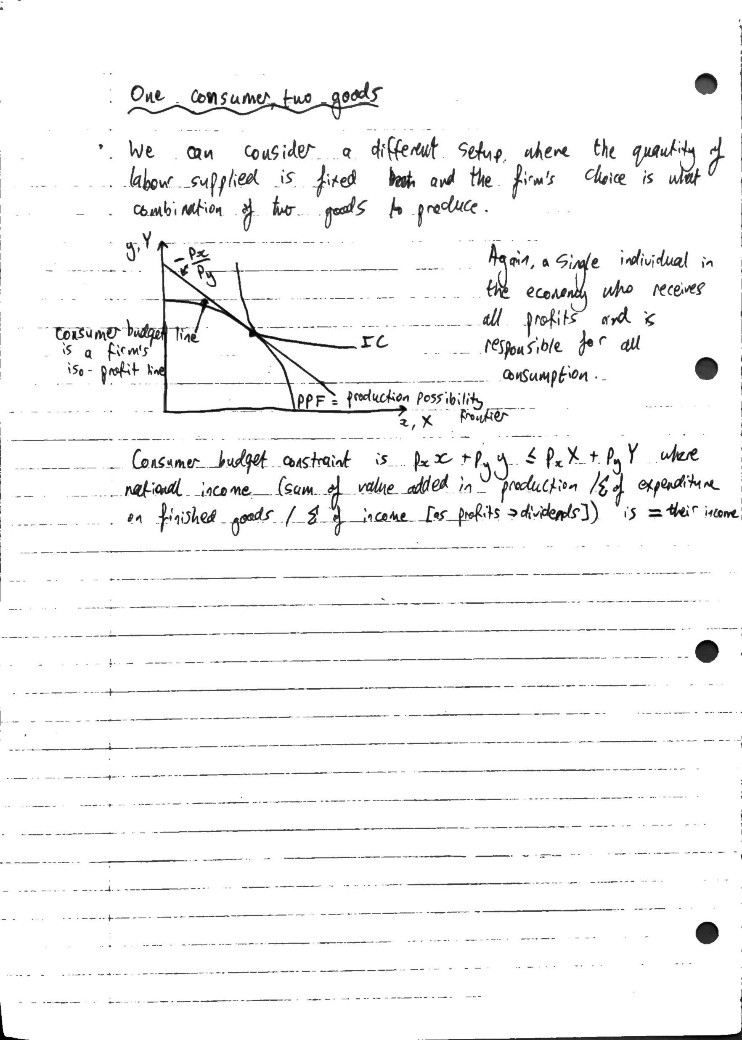 One consumer, two goods
• We can consider a different setup, where the quantity of
labour supplied is fixed and the firm's choice is what
combination of two goods to produce.
y, Y
- Px/Py
Consumer budget line
is a firm's
iso-profit line
IC
PPF = production possibility
frontier
x, X
Again, a single individual in
the economy who receives
all profits and is
responsible for all
consumption.
Consumer budget constraint is Pxx + Pyy ≤ PxX + PyY where
national income (sum of value added in production / Σ of expenditure
on finished goods / Σ of income [as profits → dividends]) is = their income